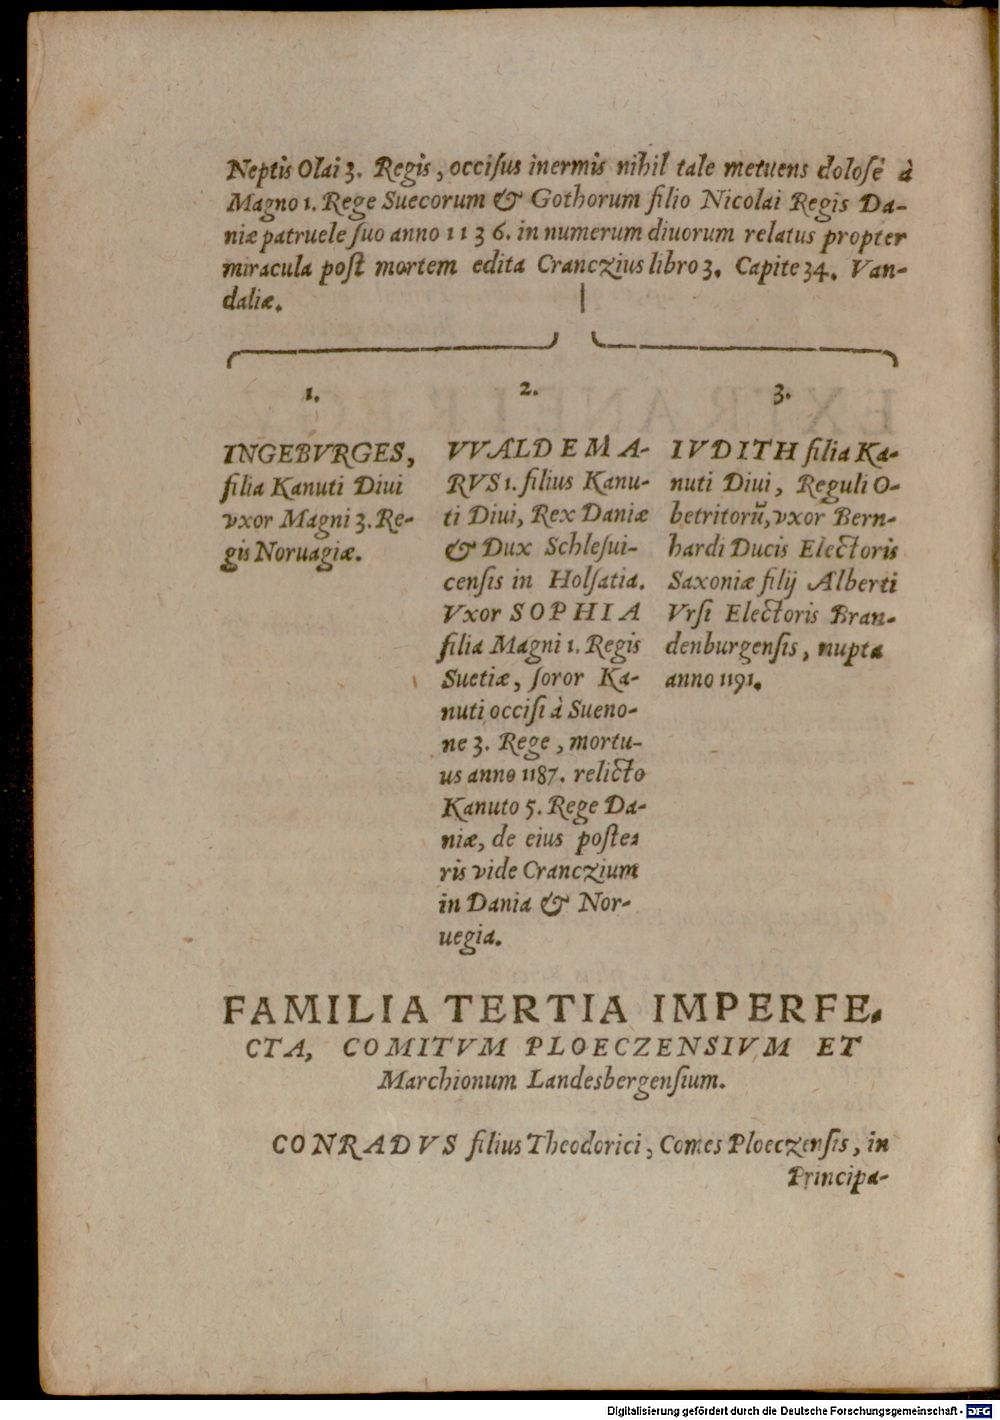 Neptis Olai 3. Regis, occiſus inermis nihil tale metuens doloſè à
Magno 1. Rege Suecorum & Gothorum filio Nicolai Regis Da-
niæ patruele ſuo anno 1136. in numerum diuorum relatus propter
miracula poſt mortem edita Cranczius libro 3. Capite 34. Van-
daliæ.
1.
INGEBVRGES,
filia Kanuti Diui
vxor Magni 3. Re-
gis Noruagiæ.
2.
VVALDEMA-
RVS 1. filius Kanu-
ti Diui, Rex Daniæ
& Dux Schleſui-
cenſis in Holſatia.
Vxor SOPHIA
filia Magni 1. Regis
Suetiæ, ſoror Ka-
nuti occiſi à Sueno-
ne 3. Rege, mortu-
us anno 1187. relicto
Kanuto 5. Rege Da-
niæ, de eius poſte-
ris vide Cranczium
in Dania & Nor-
uegia.
3.
IVDITH filia Ka-
nuti Diui, Reguli O-
betritorũ, vxor Bern-
hardi Ducis Electoris
Saxoniæ filij Alberti
Vrſi Electoris Bran-
denburgenſis, nupta
anno 1191.
FAMILIA TERTIA IMPERFE-
CTA, COMITVM PLOECZENSIVM ET
Marchionum Landesbergenſium.
CONRADVS filius Theodorici, Comes Ploeczenſis, in
Principa-
Digitalisierung gefördert durch die Deutsche Forschungsgemeinschaft - DFG